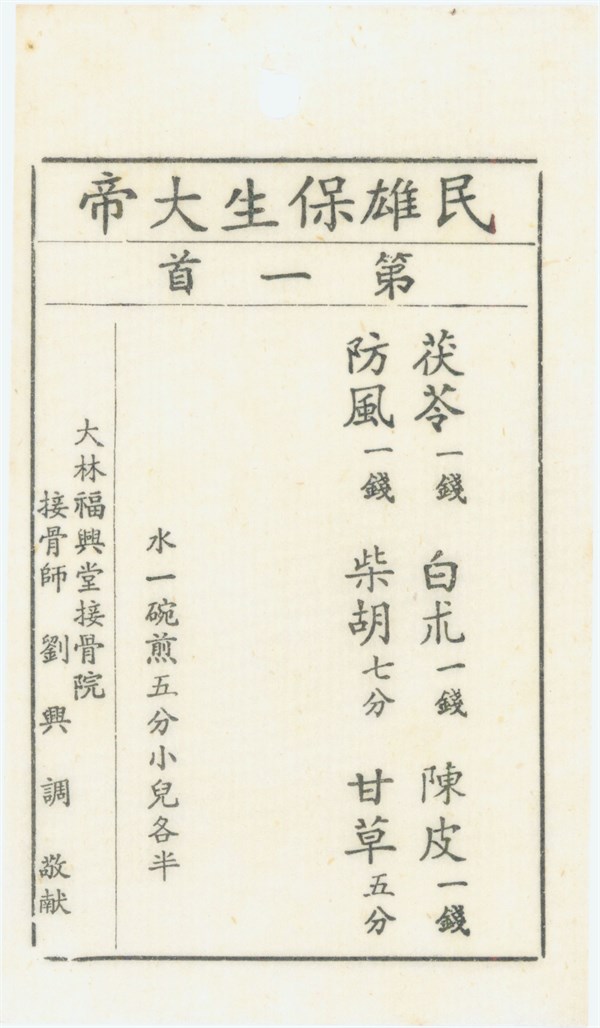 民雄保生大帝
第一首
茯苓一錢 白朮一錢 陳皮一錢
防風一錢 柴胡七分 甘草五分
水一碗煎五分小兒各半
大林福興堂接骨院
接骨師 劉興調 敬献